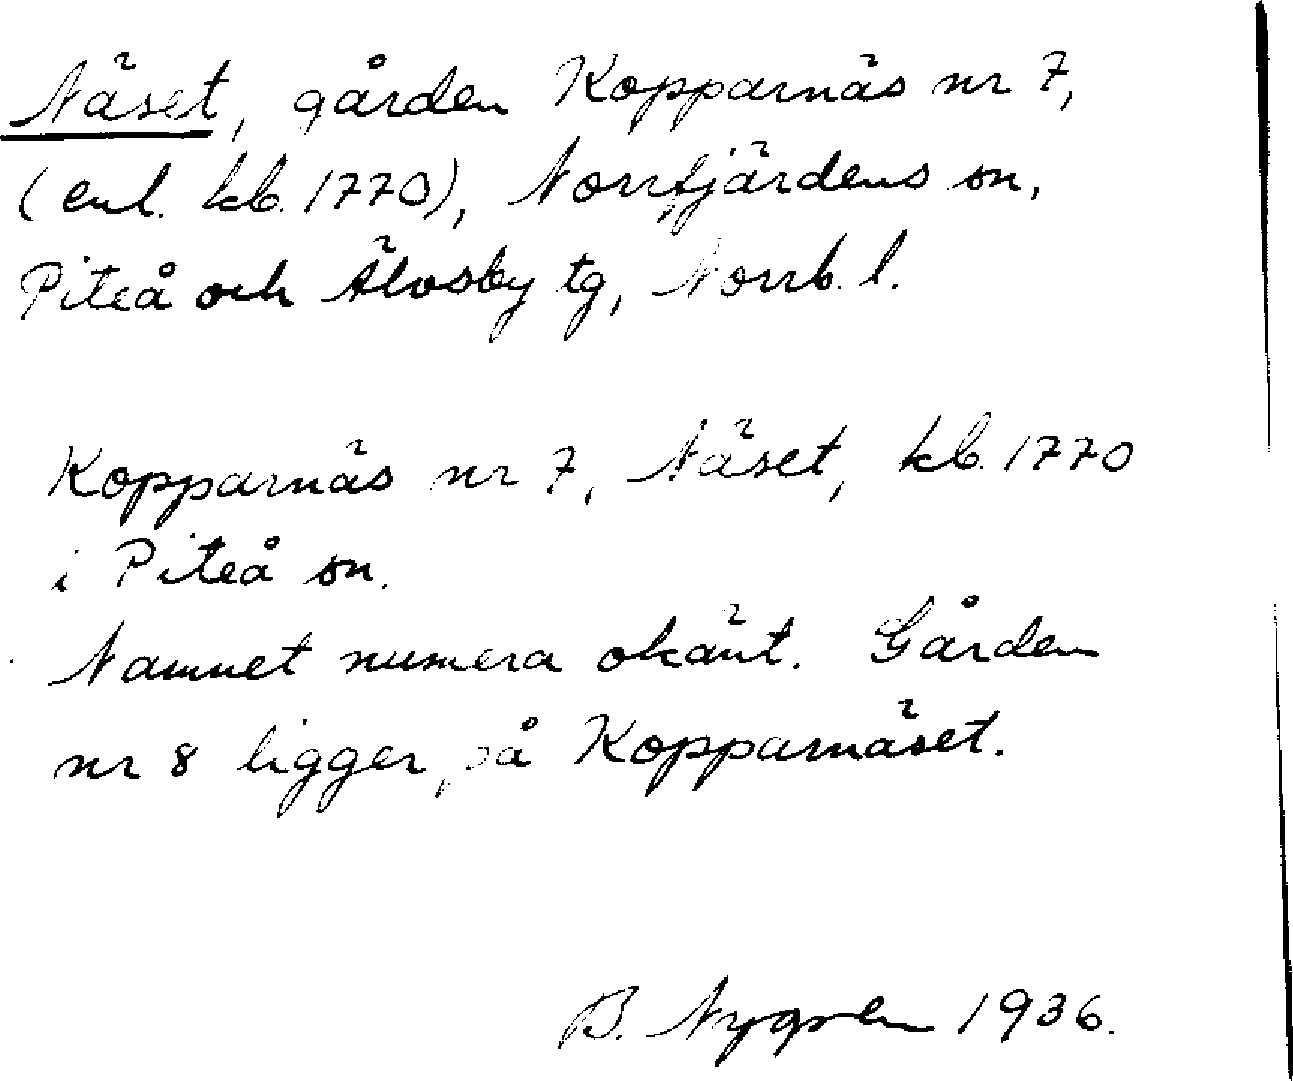 Näset, gården Kopparnäs nr 7,
(enl. kb. 1770), Norrfjärdens sn,
Piteå och Älvsby tg, Norrb. l.
Kopparnäs nr 7, Näset, kb. 1770
i Piteå sn.
Namnet numera okänt. Gården
nr 8 ligger på Kopparnäset.
B. Nygren 1936.